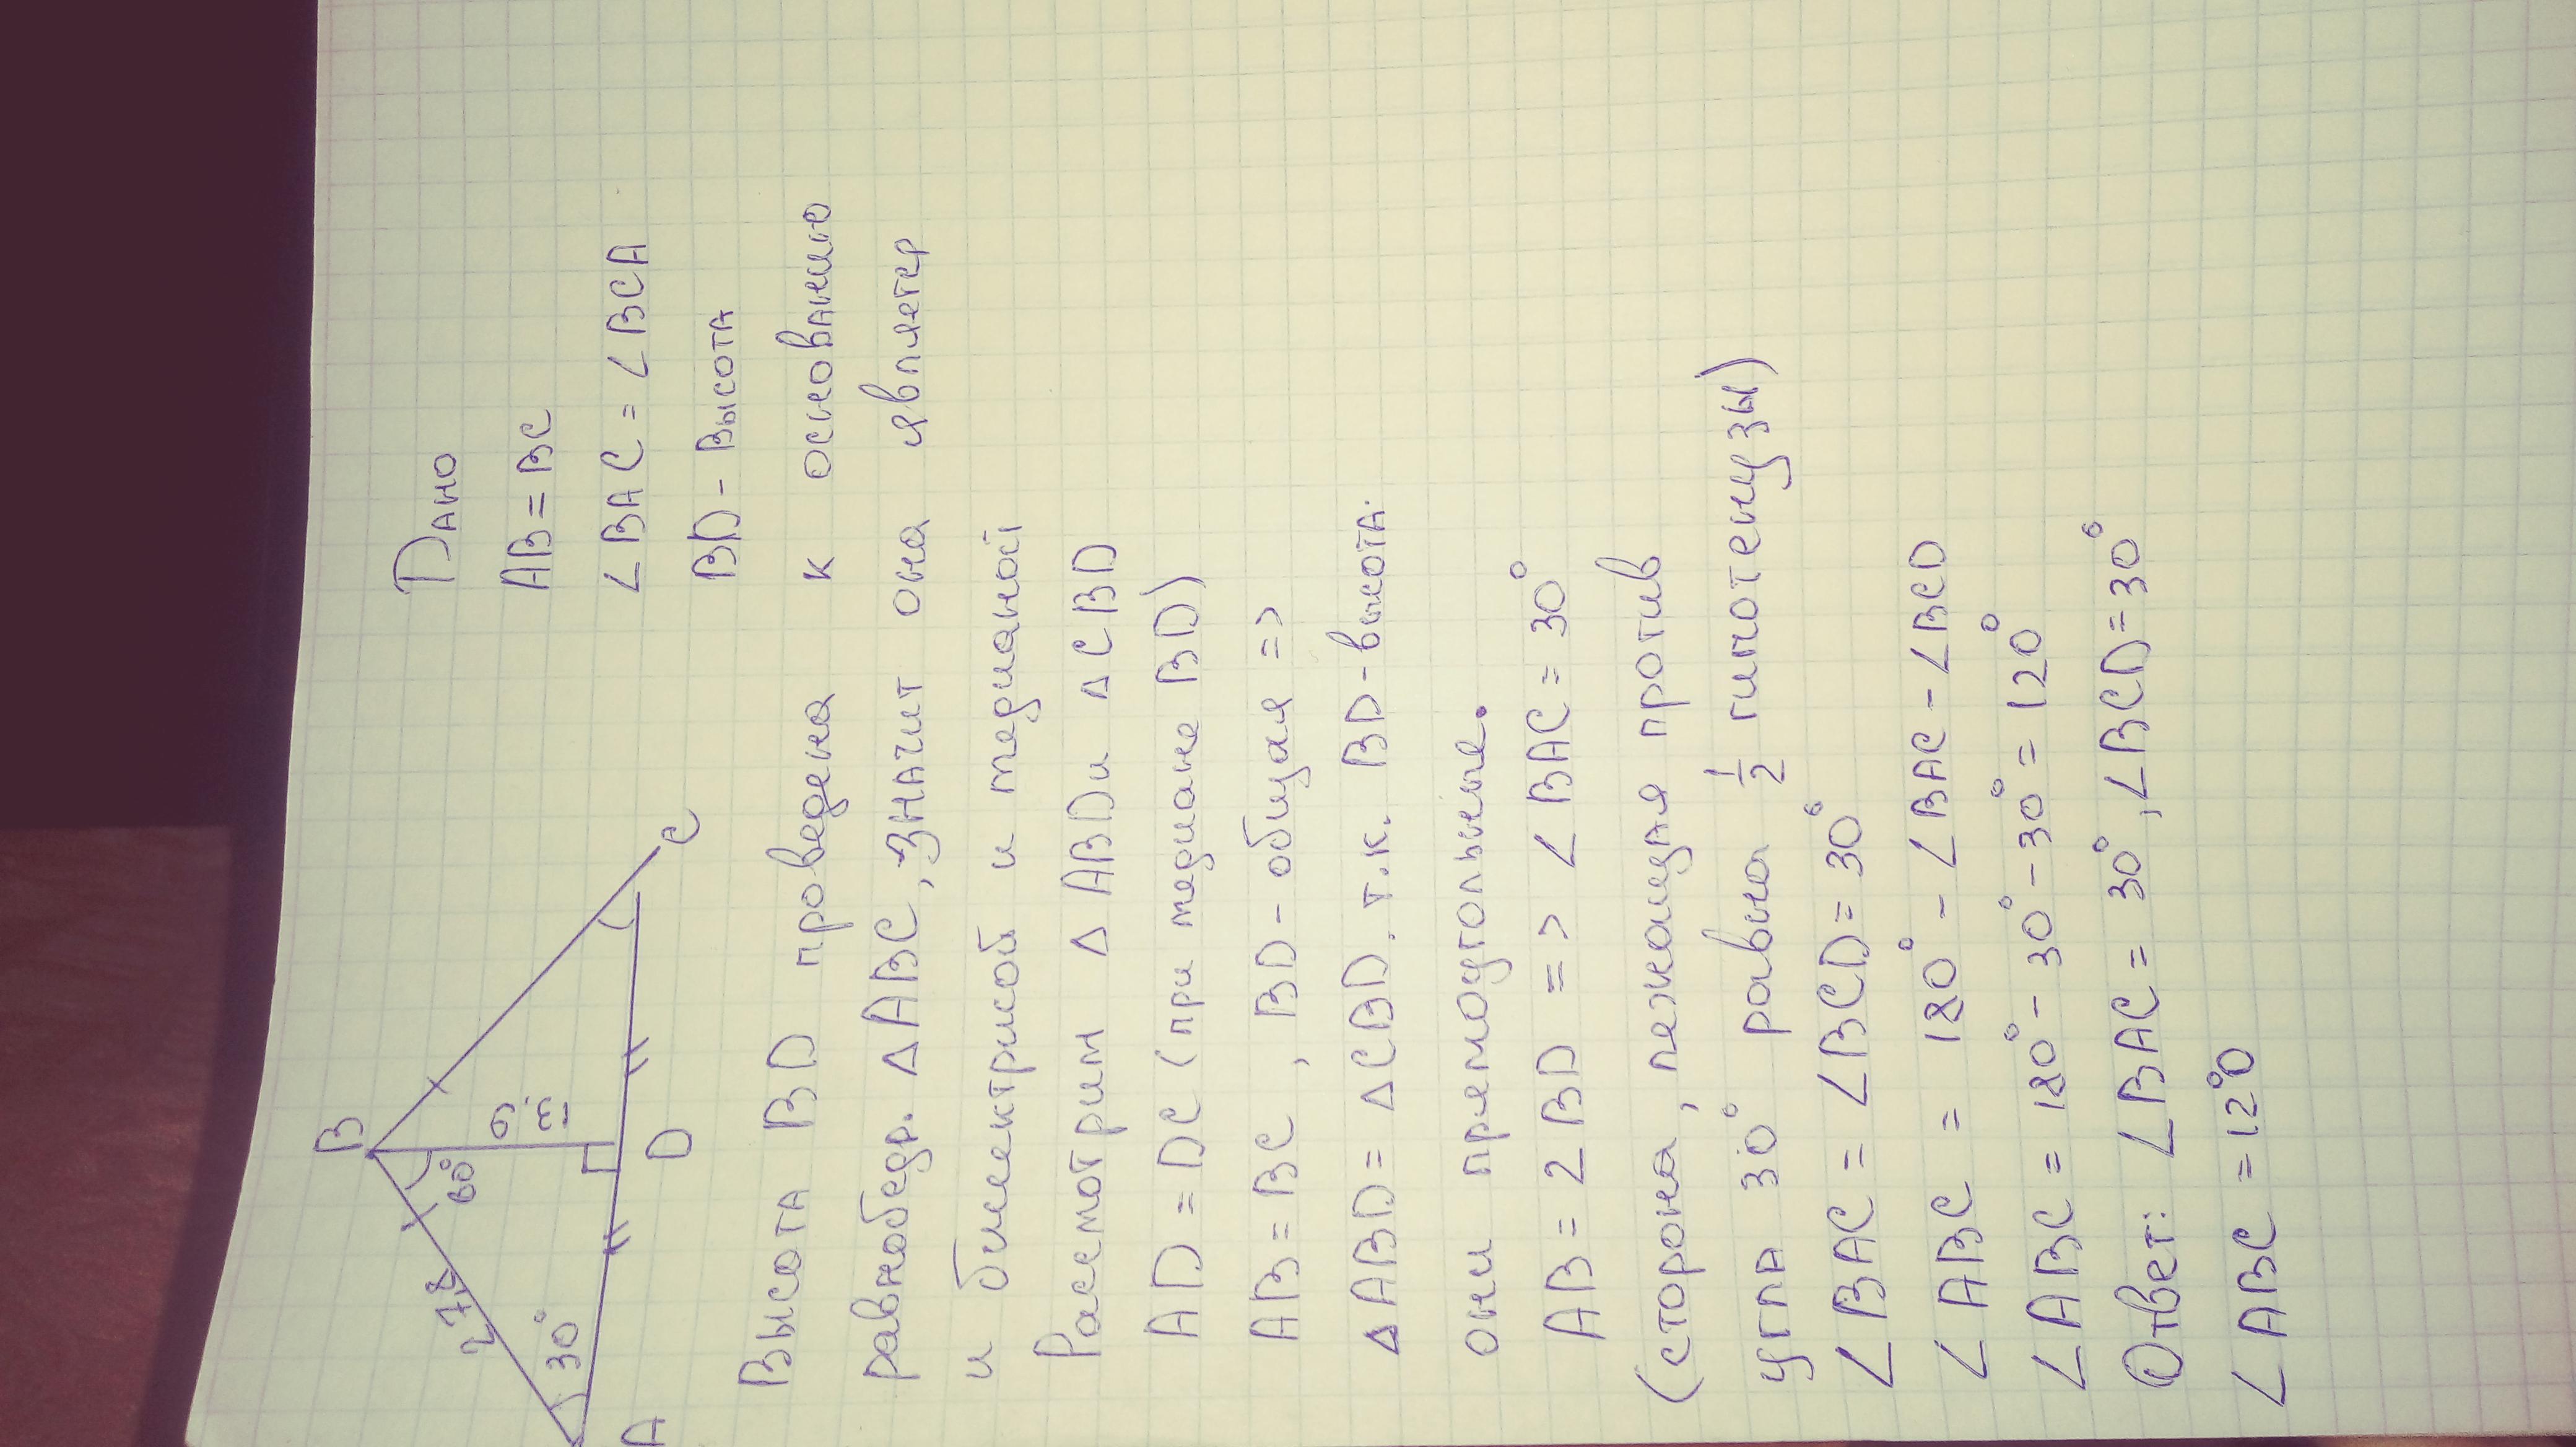 B
C
60°
30°
A
D
Дано
AB = BC
∠BAC = ∠BCA
BD - высота
Высота BD проведена к основанию
равнобедр. ΔABC, значит она является
и биссектрисой и медианой
Рассмотрим Δ ABD и Δ CBD
AD = DC (при медиане BD)
AB = BC, BD - общая =>
ΔABD = ΔCBD. т.к. BD - высота.
они прямоугольные.
AB = 2BD => ∠BAC = 30°
(сторона, лежащая против
угла 30° равна 1/2 гипотенузы)
∠BAC = ∠BCD = 30°
∠ABC = 180° - ∠BAC - ∠BCD
∠ABC = 180° - 30° - 30° = 120°
Ответ: ∠BAC = 30°, ∠BCD = 30°
∠ABC = 120